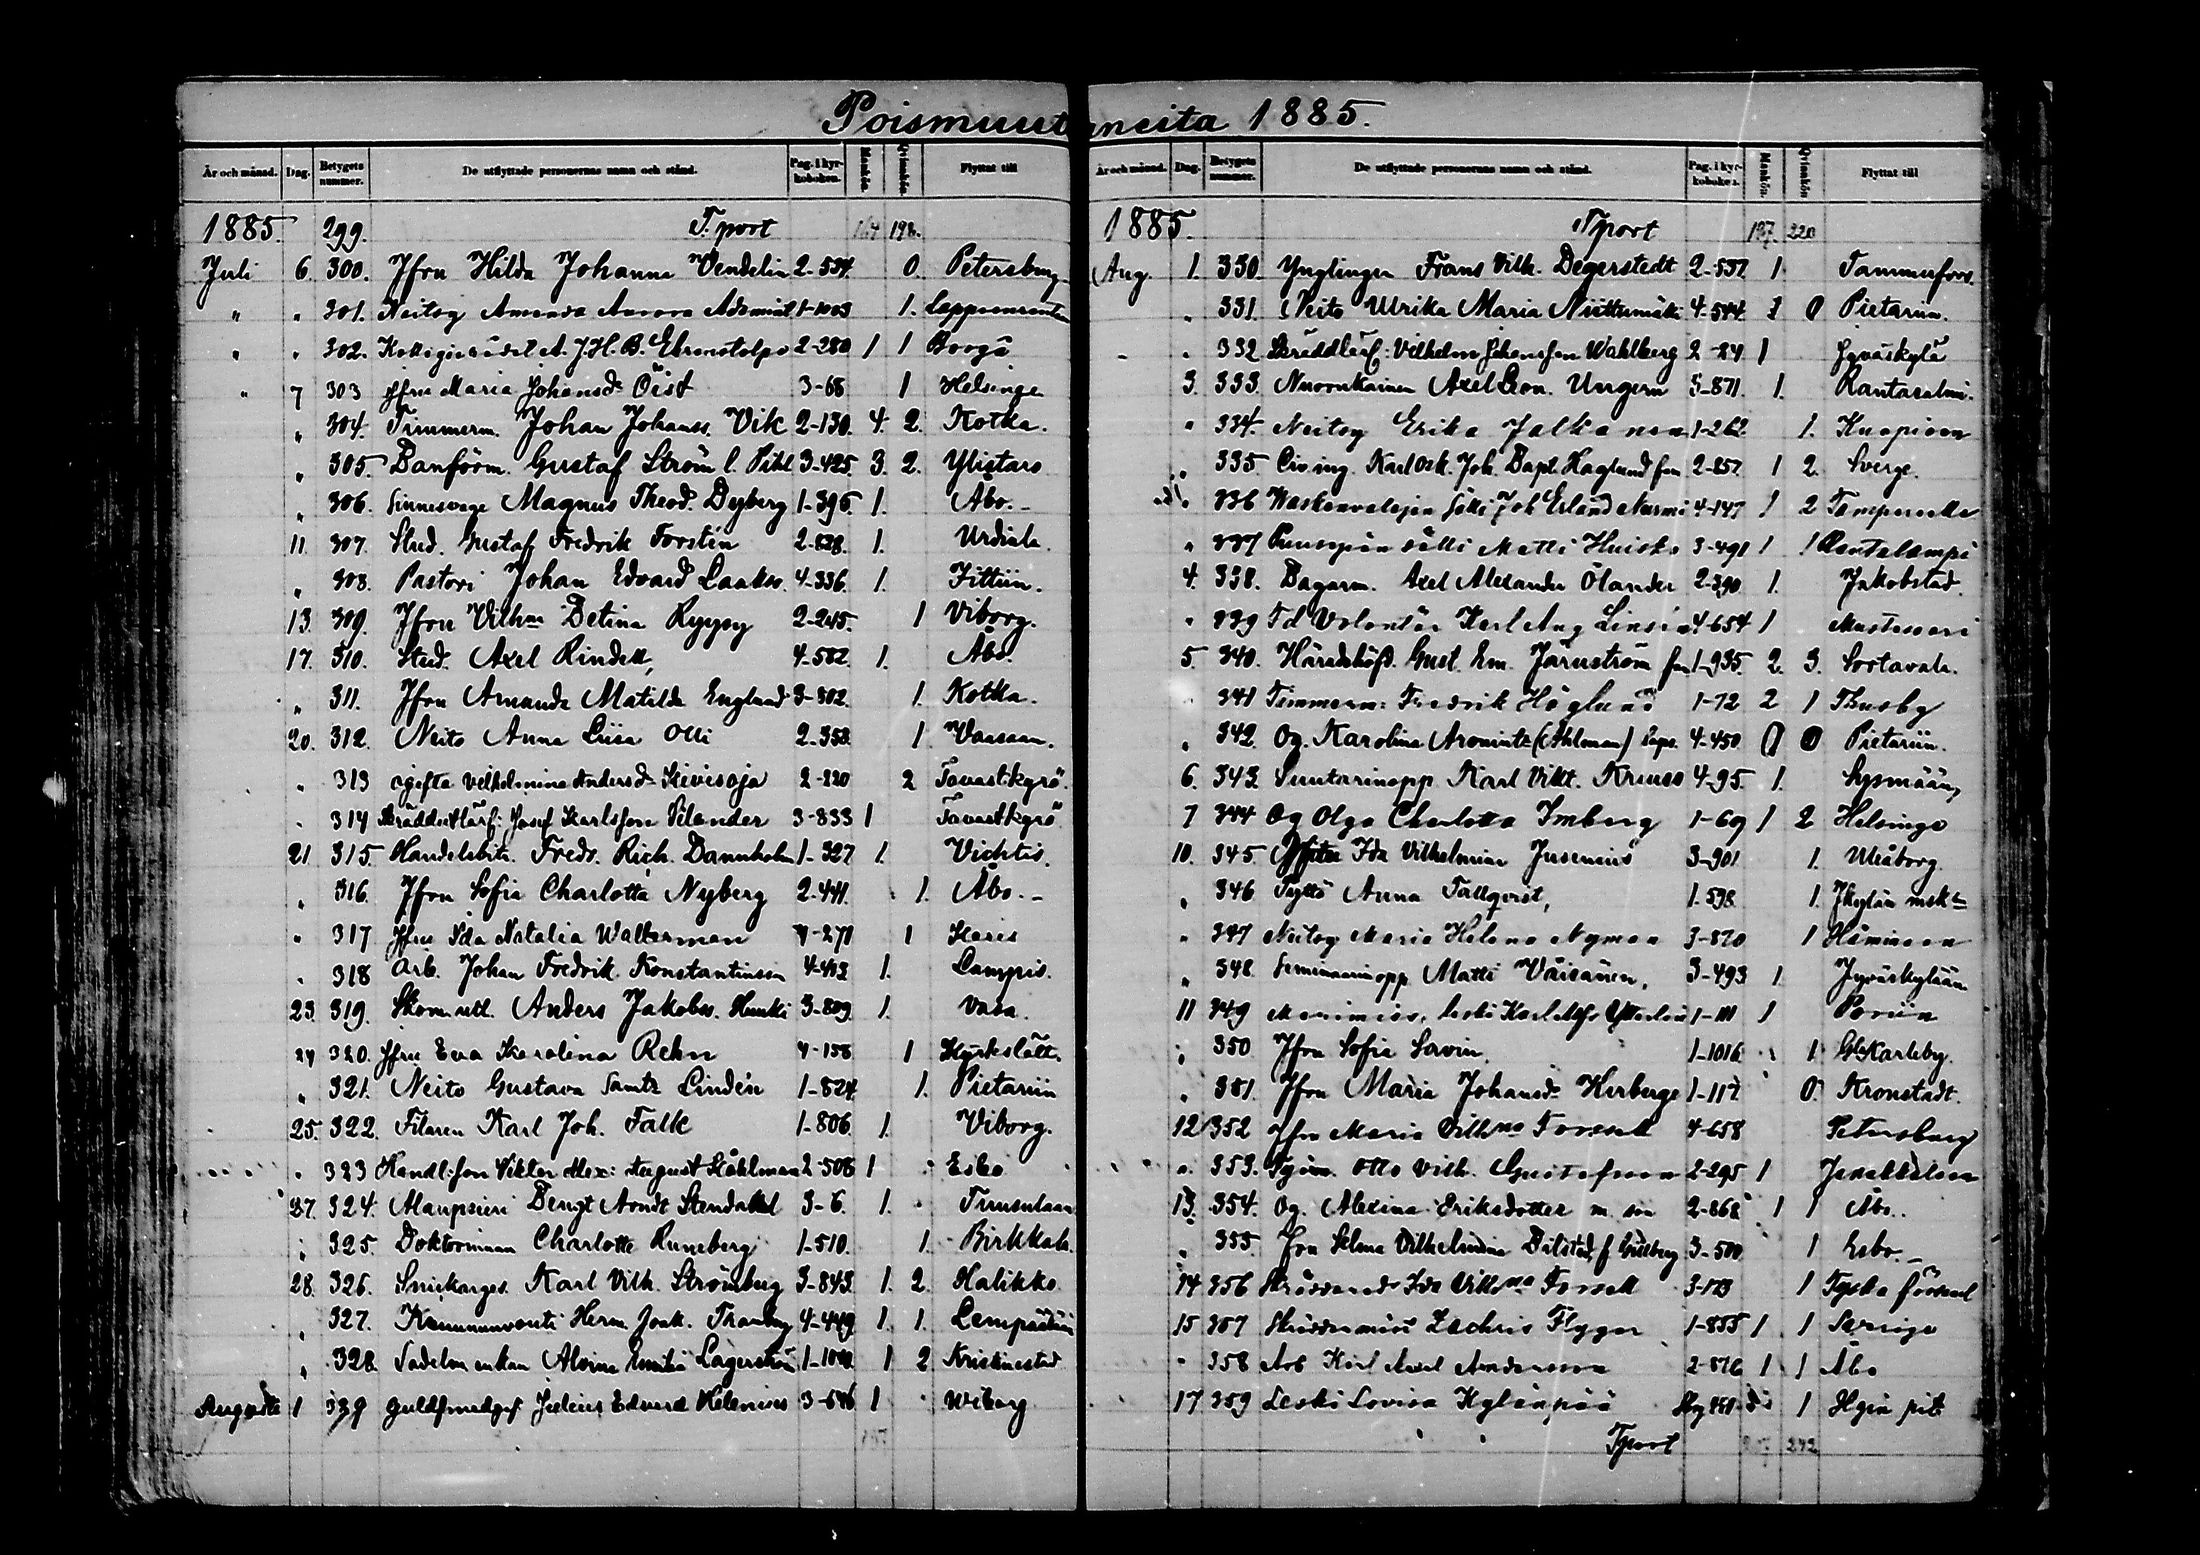 Poismuuttaneita 1885.
År och månad. Dag. Betygets nummer. De utflyttade personernas namn och stånd. Pag. i kyrkoboken. Mankön. Qvinnkön. Flyttat till
1885. 299. T. port 198.
Juli 6. 300. Jfru Hilda Johanna Vendelin 2-534. 0. Petersburg
" " 301. Neitsy Amanda Aurora 1-1003 1.
" " 302. J. H. B. Ehrnstolpe 2-280 1 1 Borgå
" 7 303 Jfru Maria Johansd. Öist 3-68 1 Helsinge
" 304. Timmerm. Johan Johanss. Vik 2-130. 4. 2. Kotka.
" 305. Banförm. Gustaf Ström l. Pihl 3-425. 3. 2. Ylistaro
" 306. Sinnesvage Magnus Theod. Dyberg 1-396. 1. Åbo. -
11. 307. Stud. Gustaf Fredrik Forstén 2-828. 1. Urdiala.
" 308. Pastori Johan Edvard Laakso. 4-336. 1. Jittiin.
13. 309. Jfru Vilhna Betina Ryypy 2-245. 1 Viborg.
17. 310. Stud. Axel Rindell, 4-582. 1. Åbo.
" 311. Jfru Amanda Matilda Englund 3-302. 1. Kotka.
20. 312. Neito Anna Liisa Olli 2-353. 1 Vaasaan.
" 313 ogifta Vilhelmina Andersd. Kivisoja 2-220 2 Tavastkyrö.
" 314 Skräddarelärl: Josef Karlsson Silander 3-833 1 Tavastkyrö
21. 315. Handelsbitr. Fredr. Rich. Dannholm 1-327 1. Vichtis.
" 316. Jfru Sofia Charlotta Nyberg 2-441. 1. Åbo. -
" 317 Jfru Ida Natalia Walterman 4-271 1 Karis
" 318 Arb. Johan Fredrik Konstantinsson 4-413 1. Lampis.
23. 319. Skom. utl. Anders Jakobss. Hunki 3-809. 1. Vasa.
24 320. Jfru Eva Karolina Rehn 4-158 1 Kyrkslätt.
" 321. Neito Gustava Santa Lindén 1-824. 1. Pietariin
25. 322. Filaren Karl Joh. Falk 1-806. 1. Viborg.
" 323 Handl: son Viktor Alex: August Ståhlman 2-508 1 Esbo
27. 324. Alaupsieri Bengt Arndt Stendahl 3-6. 1.
" 325. Doktorinnan Charlotte Runeberg 1-510. 1. Birkkala.
28. 326. Snickarges. Karl Vilh. Strömberg 3-843. 1. 2. Halikko.
" 327. Herm. Joak. 4-449. 1. 1.
" 328. Sadelm. enkan Alvina Emilia Lagerström 1-1040. 1 2 Kristinestad
Augusti 1 329 Guldsmedges Julius Edvard Helenius 3-646 1 Wiborg
År och månad. Dag. Betygets nummer. De utflyttade personernas namn och stånd. Pag. i kyrkoboken. Mankön. Qvinnkön Flyttat till
1885. Tport 197. 220
Aug. 1. 330. Ynglingen Frans Vilh. Degerstedt 2-537. 1. Tammerfors.
" 331. Neito Ulrika Maria Niittumäki 4-544. 1 0 Pietariin.
" 332. Skräddlärl: Vilhelm Johansson Wahlberg 2-24 1 Jyväskylä
3. 333. Nuorukainen Axel Leon. Ungern 3-871. 1. Rantasalmi.
" 334. Neitsy Erika Jalkanen 1-262 1. Kuopioon
" 335 Civ. ing. Karl Osk. Joh. Bapt. Haglund fam 2-857. 1 2. Sverge.
" 336 Waskenvalajan sälli Joh Erland Nurmi 4-147 1 2 Tampereelle
" 337 Puusepän sälli Matti Huisko 3-491 1 1 Rautalampi
4. 338. Bagarm. Axel Alexander Ölander 2-390 1. Jakobstad.
" 339 Fd Volontär Karl Aug Linsén 4-654 1 Mustasaari
5. 340. Häradshöfd. Gust. Em. Järnström fam 1-935. 2. 3. Sortavala.
" 341 Timmerm: Fredrik Höglund 1-72 2 1 Thusby
" 342. Og. Karolina (Ahlman) 4-450. 0 Pietariin.
6. 343. Suutarinopp Karl Vikt. Kruuse 4-95. 1. Sysmään,
7 344 Og Olga Charlotta Imberg 1-69 1 2 Helsinge
10. 345 Ida Vilhelmina Jusenius 3-901. 1. Uleåborg.
" 346 Tyttö Anna Tallqvist, 1-598. 1.
" 347 Neitsy Maria Helena Nyman 3-870 1 Haminaan
" 348. Seminaarinopp Matti Väisänen, 3-493. 1. Jyväskylään
11 349 Merimies, leski Karl 1-111 1 Poriin
" 350 Jfru Sofia Savin 1-1016. 1. Gl. Karleby.
" 351. Jfru Maria Johansd. Herberge 1-117. 0. Kronstadt.
12 352 Jfru Maria Vilhna Forsell 4-658 Petersburg
" 353. Otto Vilh. Gustafsson 2-295 1 Janakkalaan
13. 354. Og. Alexina Eriksdotter m. son 2-868 1 1 Åbo.
" 355. Fru Selma Vilhelmina 3-500. 1 Esbo. -
14 356 Ida Vilhna Forsell 3-123 1 Tyska församl
15 357 Zachris Flygar 1-855 1 1 Sverige
" 358 Arb Karl Axel Andersson 2-876 1 1 Åbo
17 359 Leski Lovisa Kylänpää 1 Hgin pit.
Tport 242